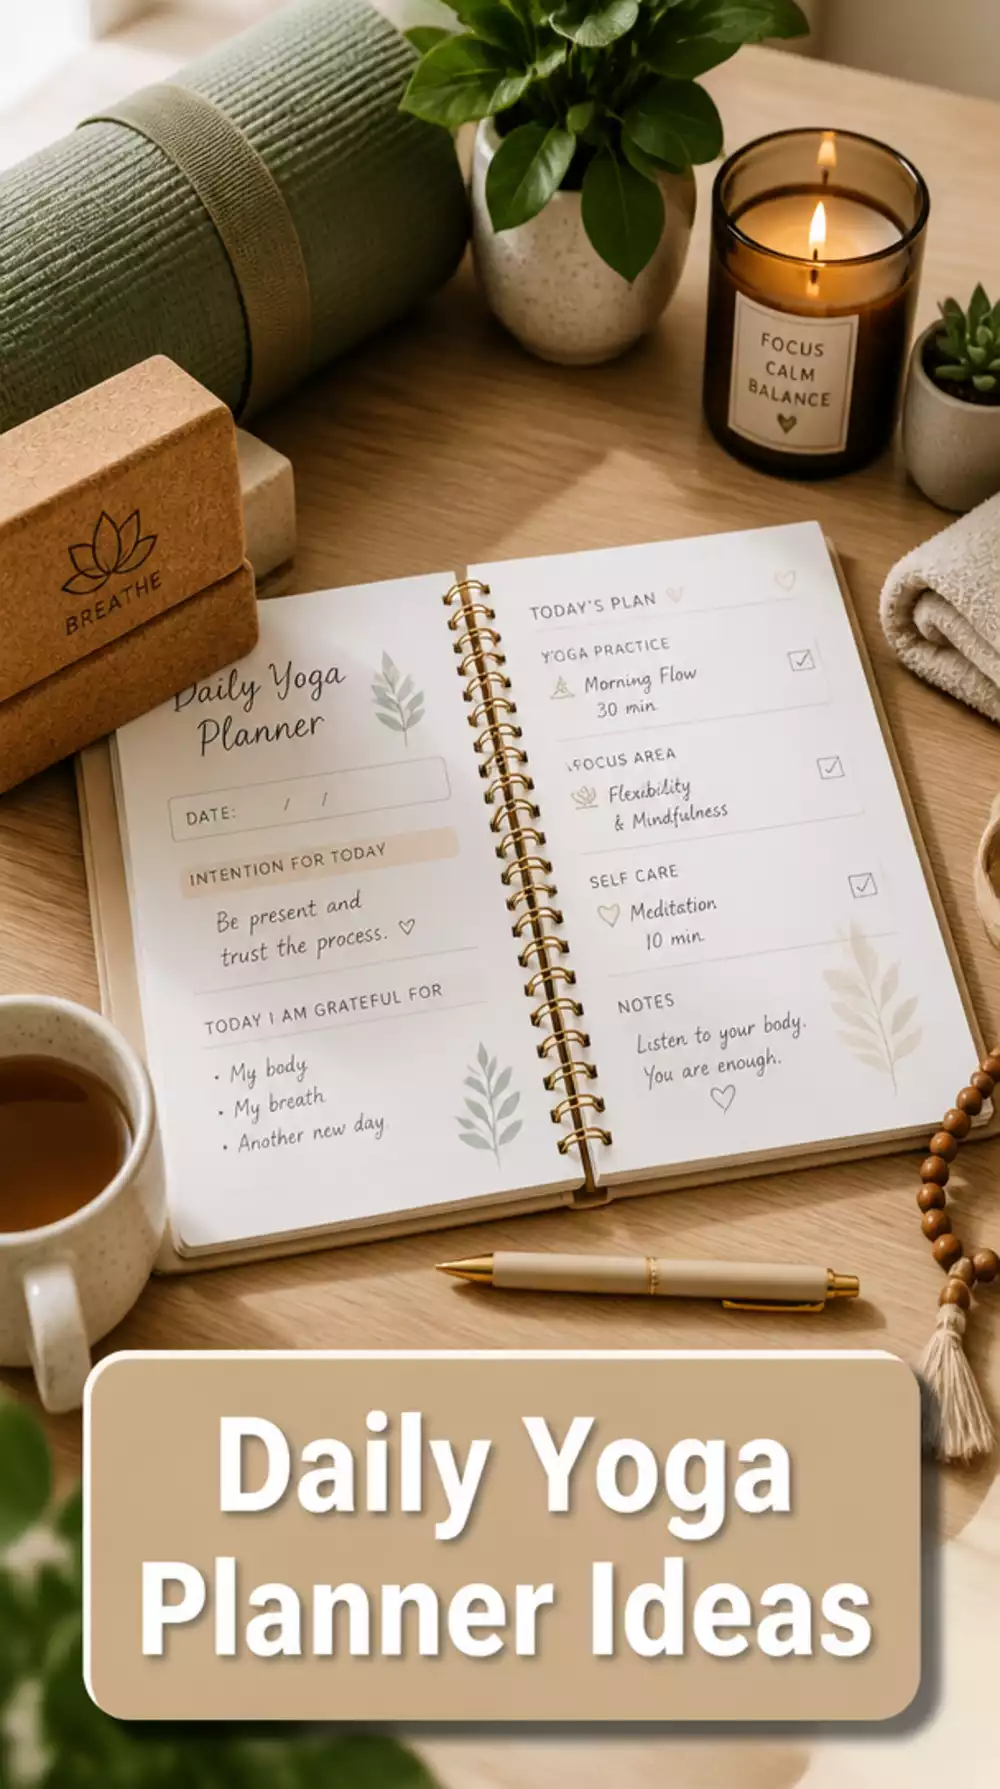 FOCUS
CALM
BALANCE
BREATHE
Daily Yoga
Planner
DATE: / /
INTENTION FOR TODAY
Be present and
trust the process.
TODAY I AM GRATEFUL FOR
• My body
• My breath
• Another new day
TODAY'S PLAN
YOGA PRACTICE
Morning Flow
30 min
FOCUS AREA
Flexibility
& Mindfulness
SELF CARE
Meditation
10 min
NOTES
Listen to your body.
You are enough.
Daily Yoga
Planner Ideas